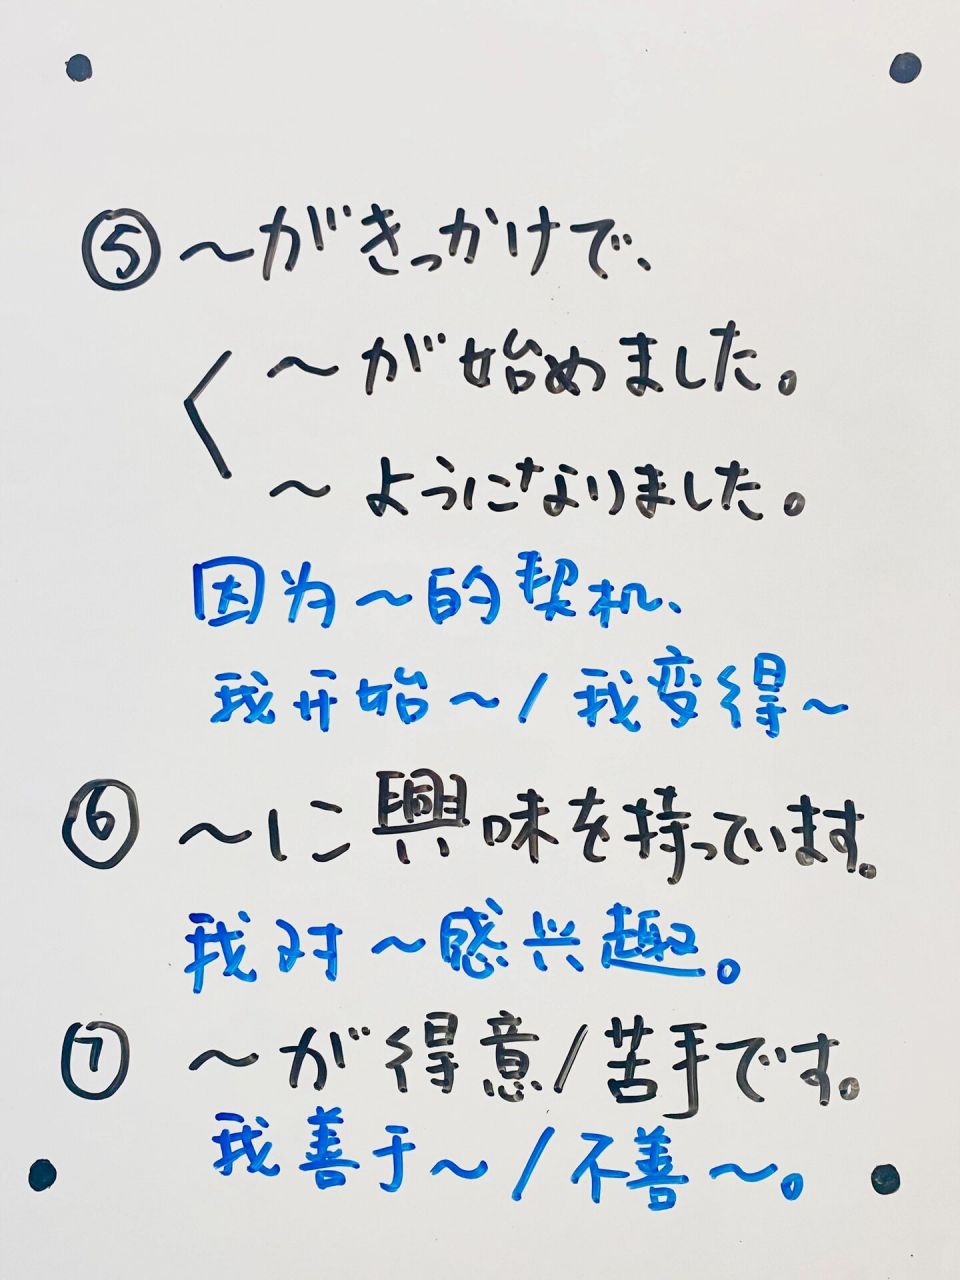 ⑤ ～がきっかけで、
～が始めました。
～ようになりました。
因为～的契机、
我开始～/我变得～
⑥ ～に興味を持っています。
我对～感兴趣。
⑦ ～が得意/苦手です。
我善于～/不善～。